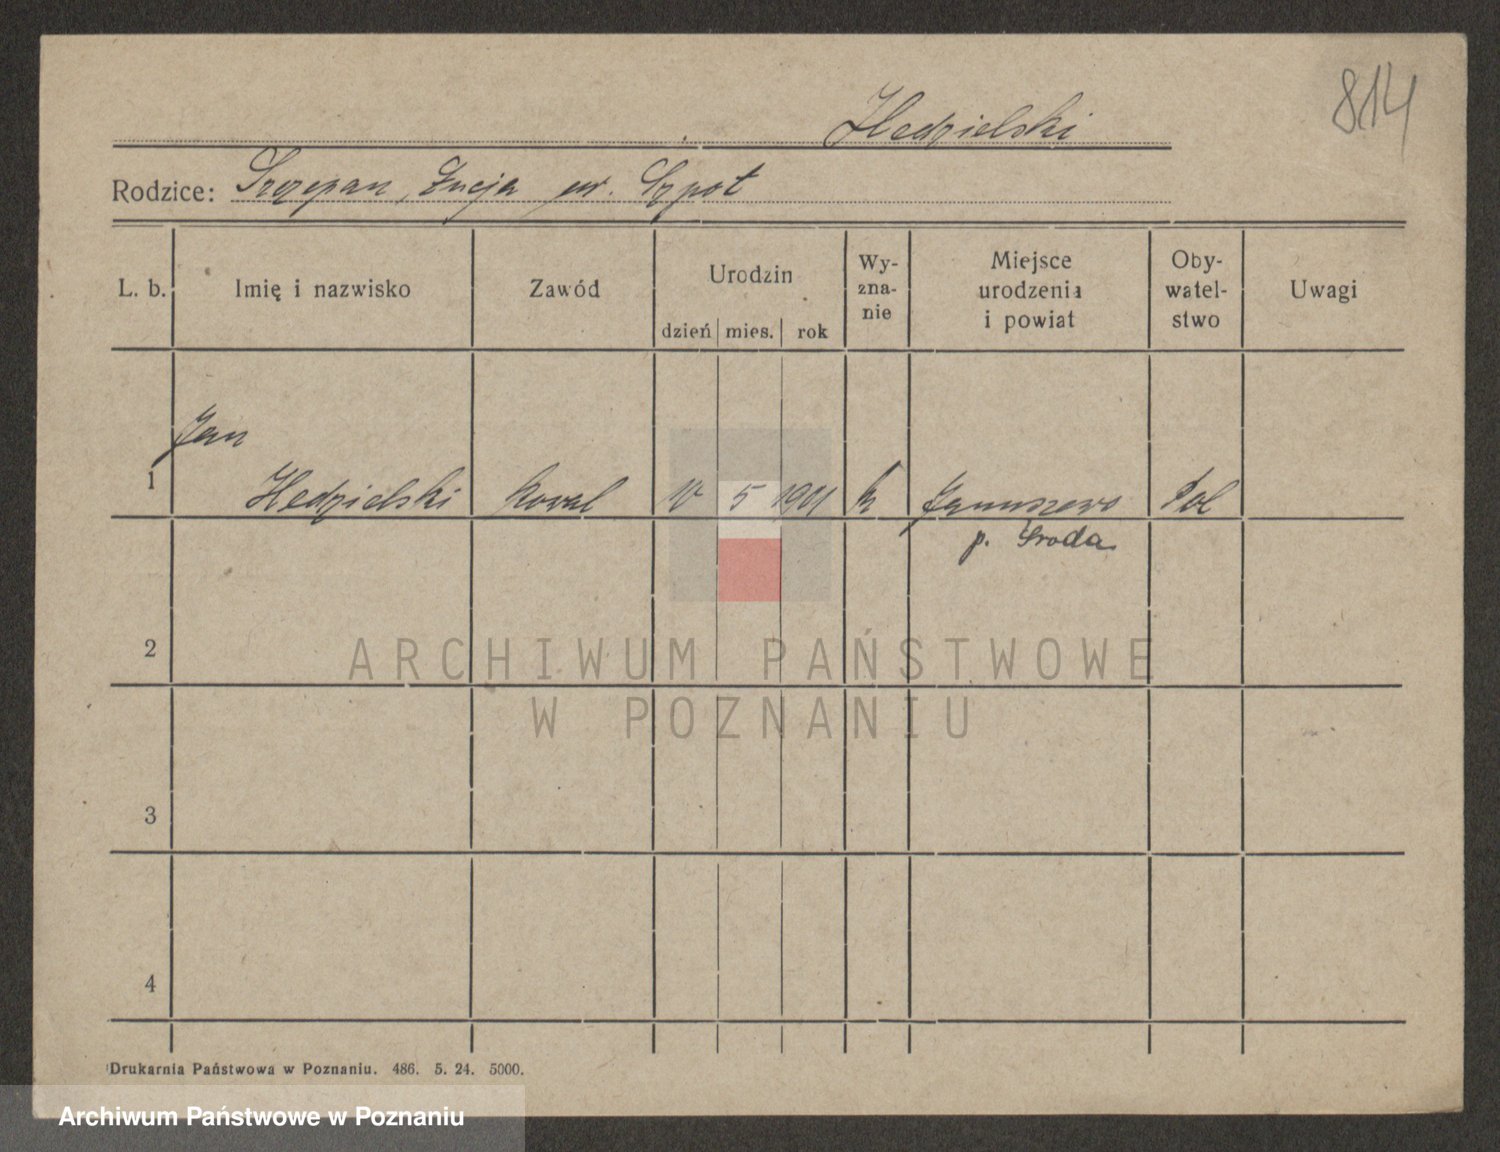 814
Hedzielski
Rodzice: Szczepan, Łucja ur. Szpot
L. b. Imię i nazwisko Zawód Urodzin dzień mies. rok Wy-zna-nie Miejsce urodzenia i powiat Oby-watel-stwo Uwagi
Jan
1 Hedzielski kowal 10 5 1901 k Januszewo Pol
p. Sroda
2
ARCHIWUM PAŃSTWOWE
W POZNANIU
3
4
Drukarnia Państwowa w Poznaniu. 486. 5. 24. 5000.
Archiwum Państwowe w Poznaniu